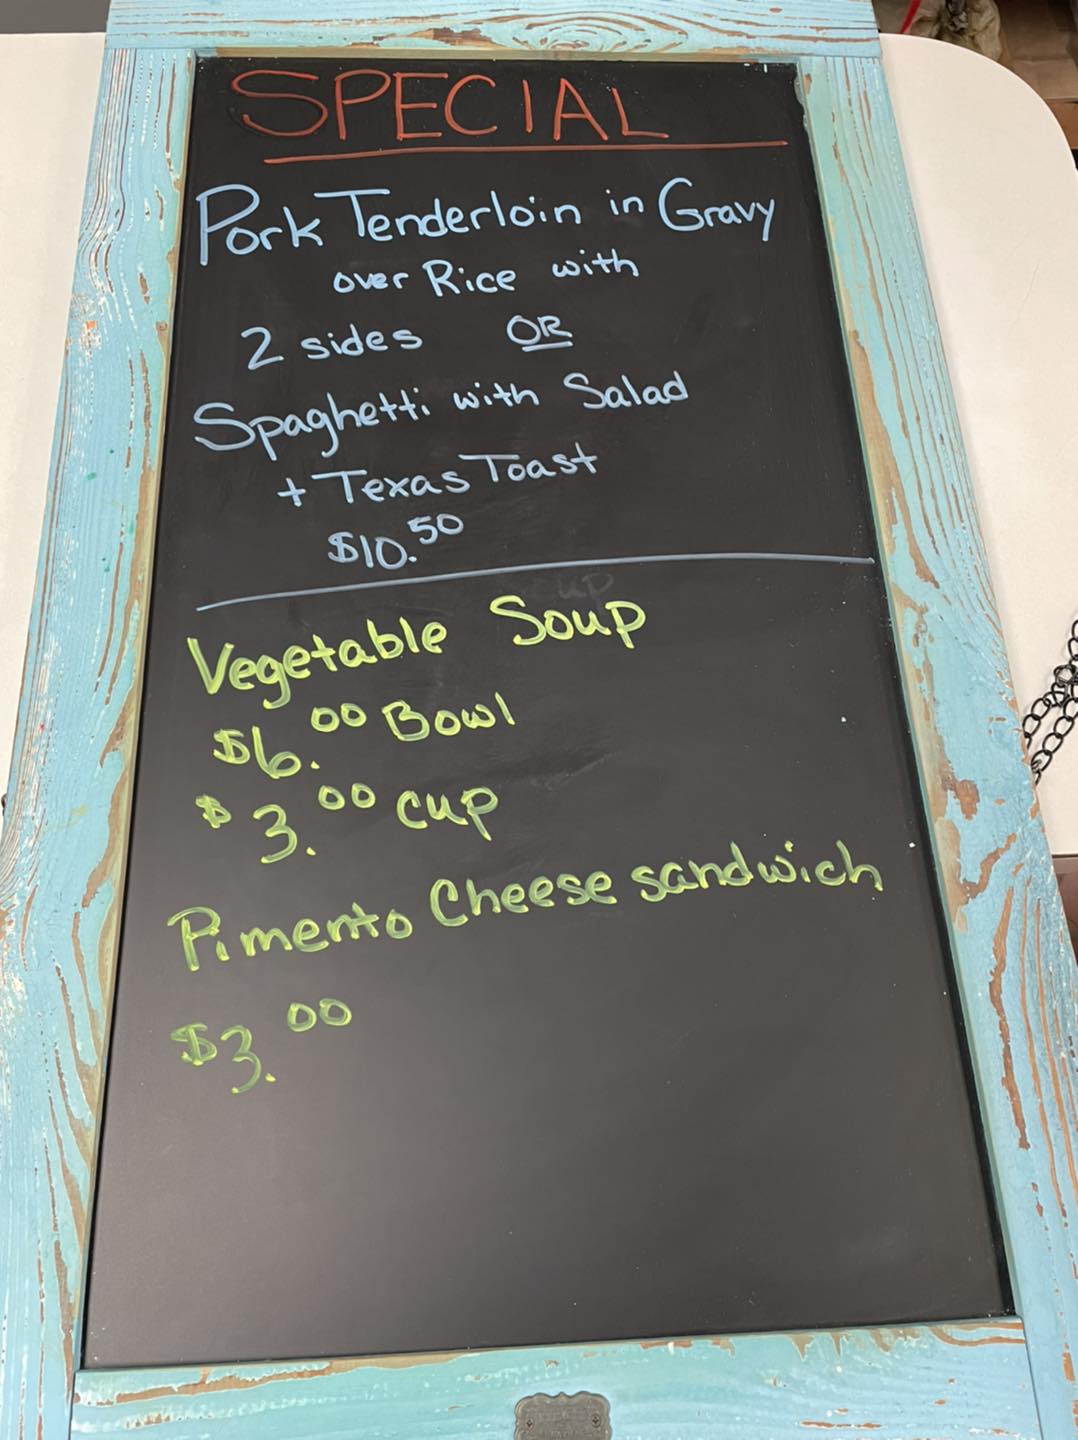 SPECIAL
Pork Tenderloin in Gravy
over Rice with
2 sides OR
Spaghetti with Salad
+ Texas Toast
$10.50
Vegetable Soup
$6.00 Bowl
$3.00 cup
Pimento Cheese sandwich
$3.00